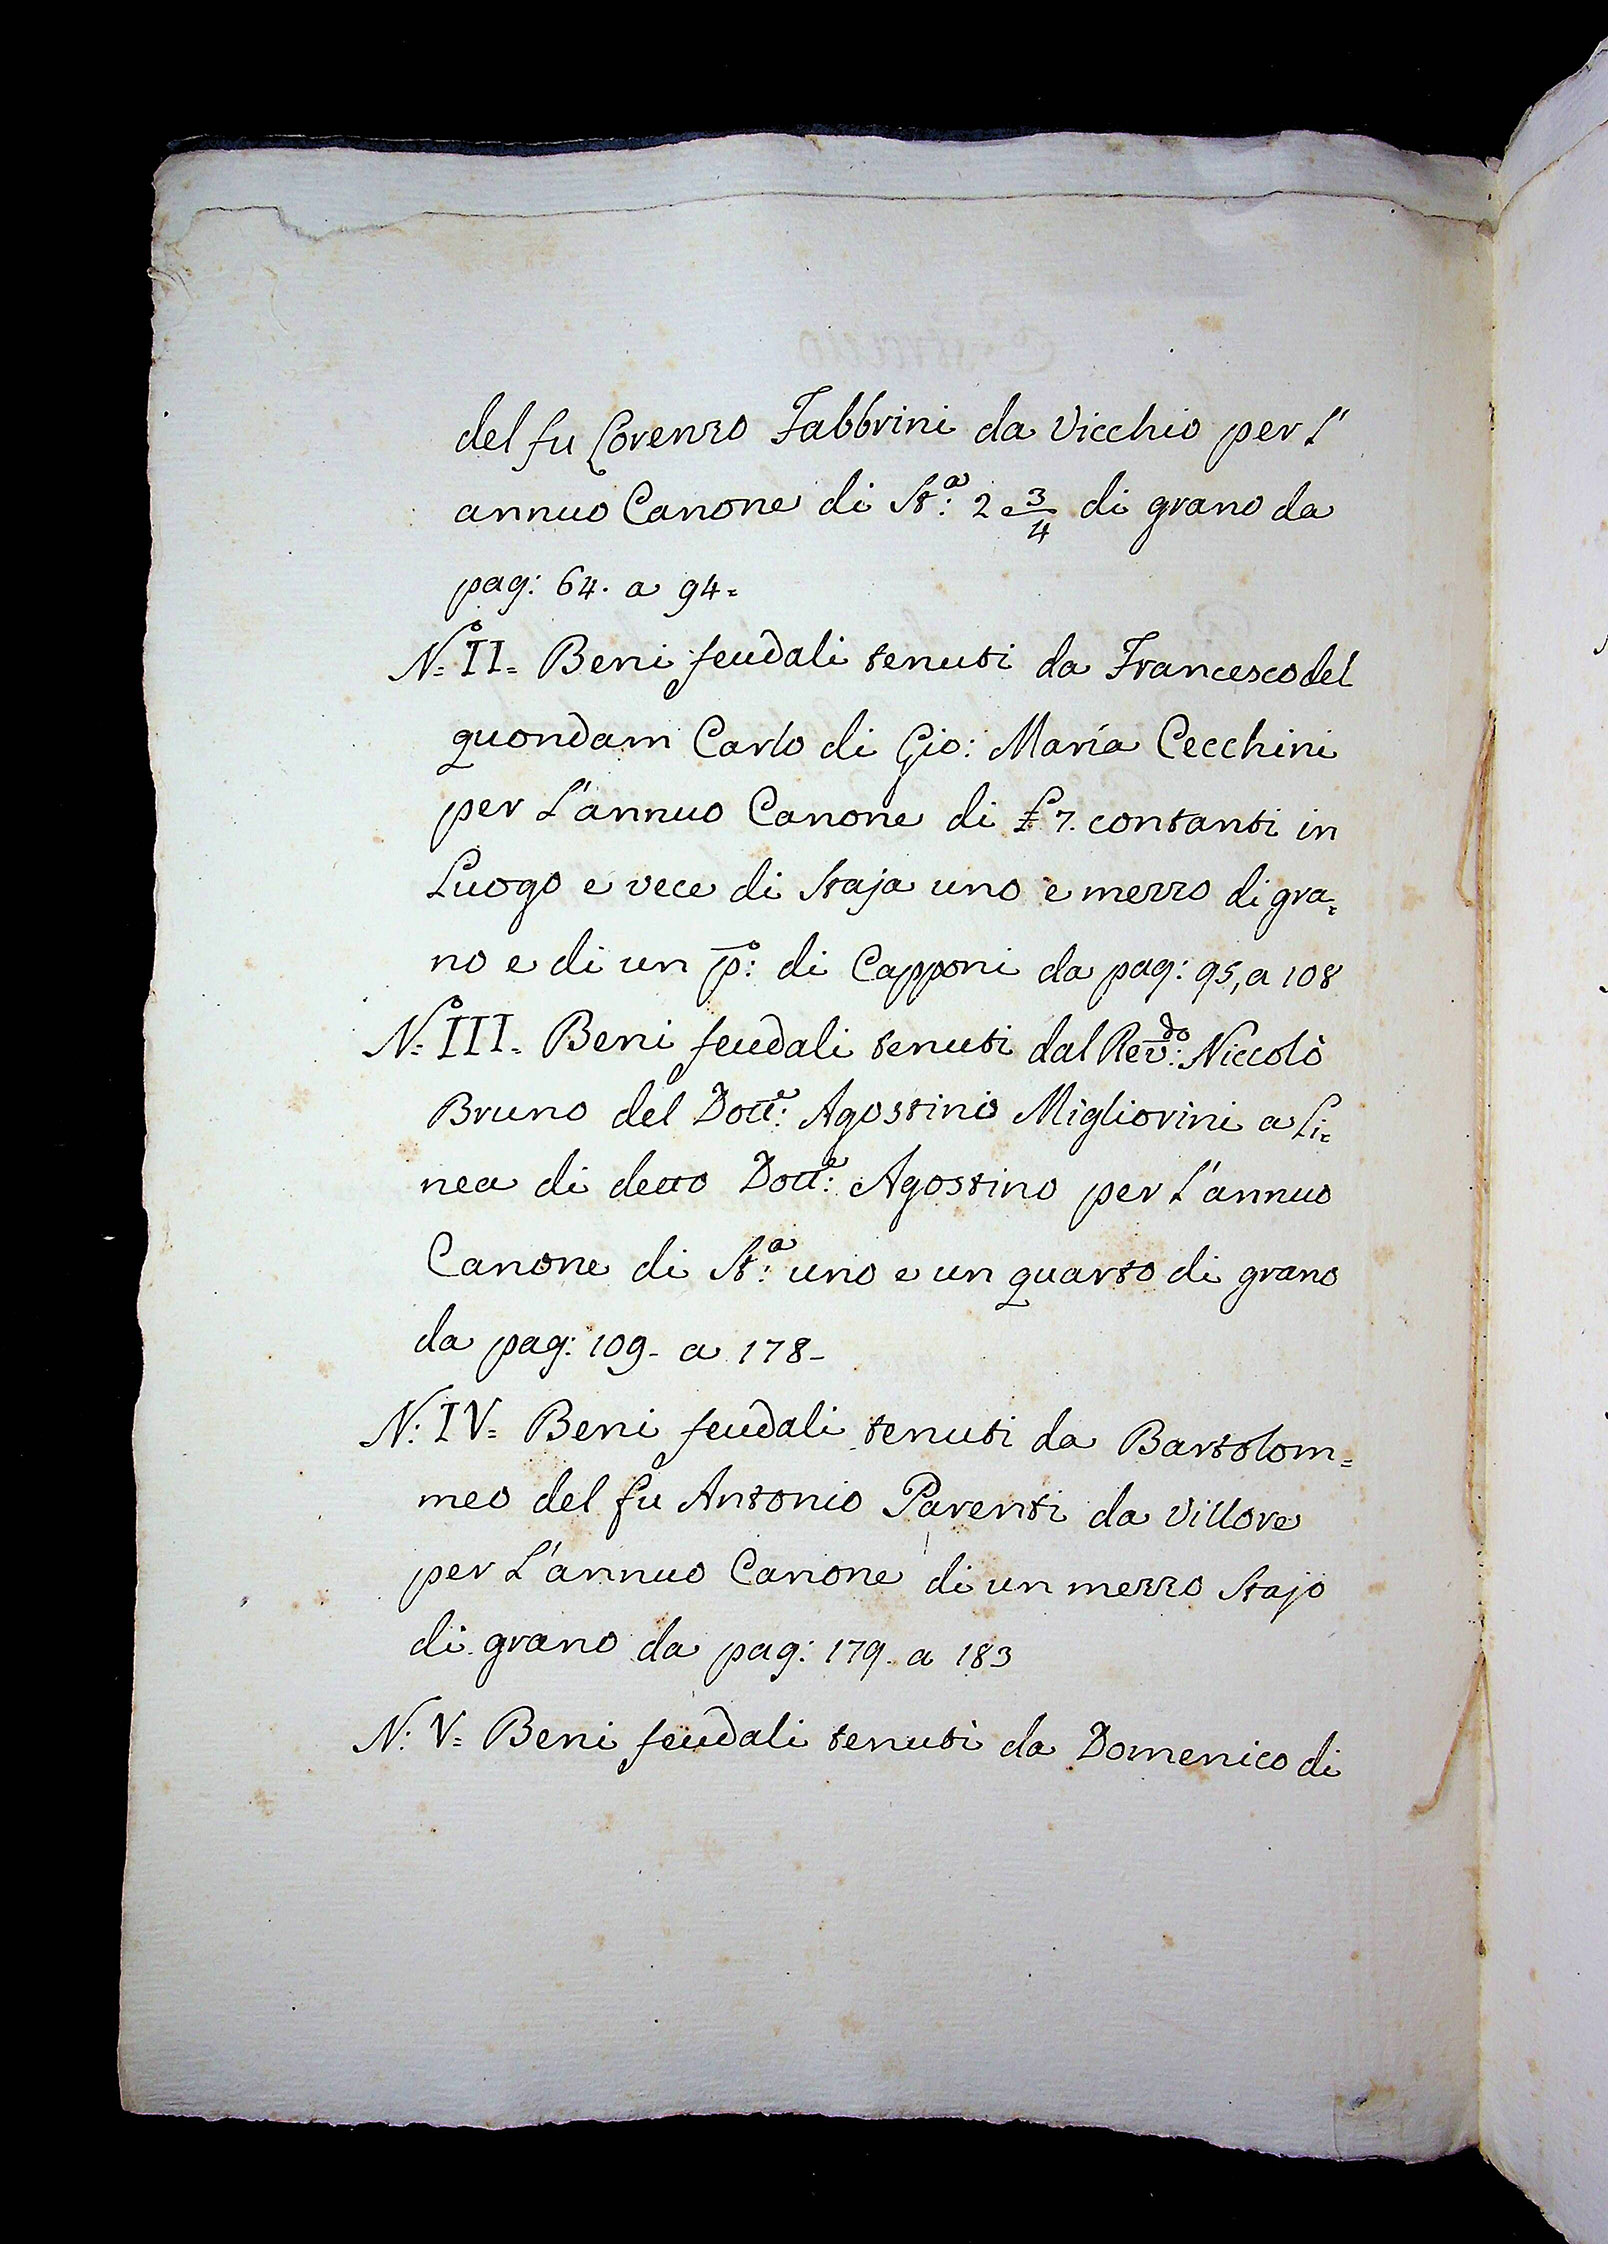 del fu Lorenzo Fabbrini da Vicchio per l'
annuo Canone di St:ª 2 e 3/4 di grano da
pag: 64. a 94=
N=º II= Beni feudali tenuti da Francesco del
quondam Carlo di Gio: Maria Cecchini
per L'annuo Canone di £ 7. contanti in
Luogo e vece di Staja uno e mezzo di gra=
no e di un p:º di Capponi da pag: 95, a 108
N=º III= Beni feudali tenuti dal Rev:do Niccolò
Bruno del Dott:e Agostino Migliorini a Li=
nea di detto Dott:e Agostino per l'annuo
Canone di St:ª uno e un quarto di grano
da pag: 109- a 178-
N: IV= Beni feudali tenuti da Bartolom=
meo del fu Antonio Parenti da Villore
per L'annuo Canone di un mezzo Stajo
di grano da pag: 179. a 183
N: V= Beni feudali tenuti da Domenico di